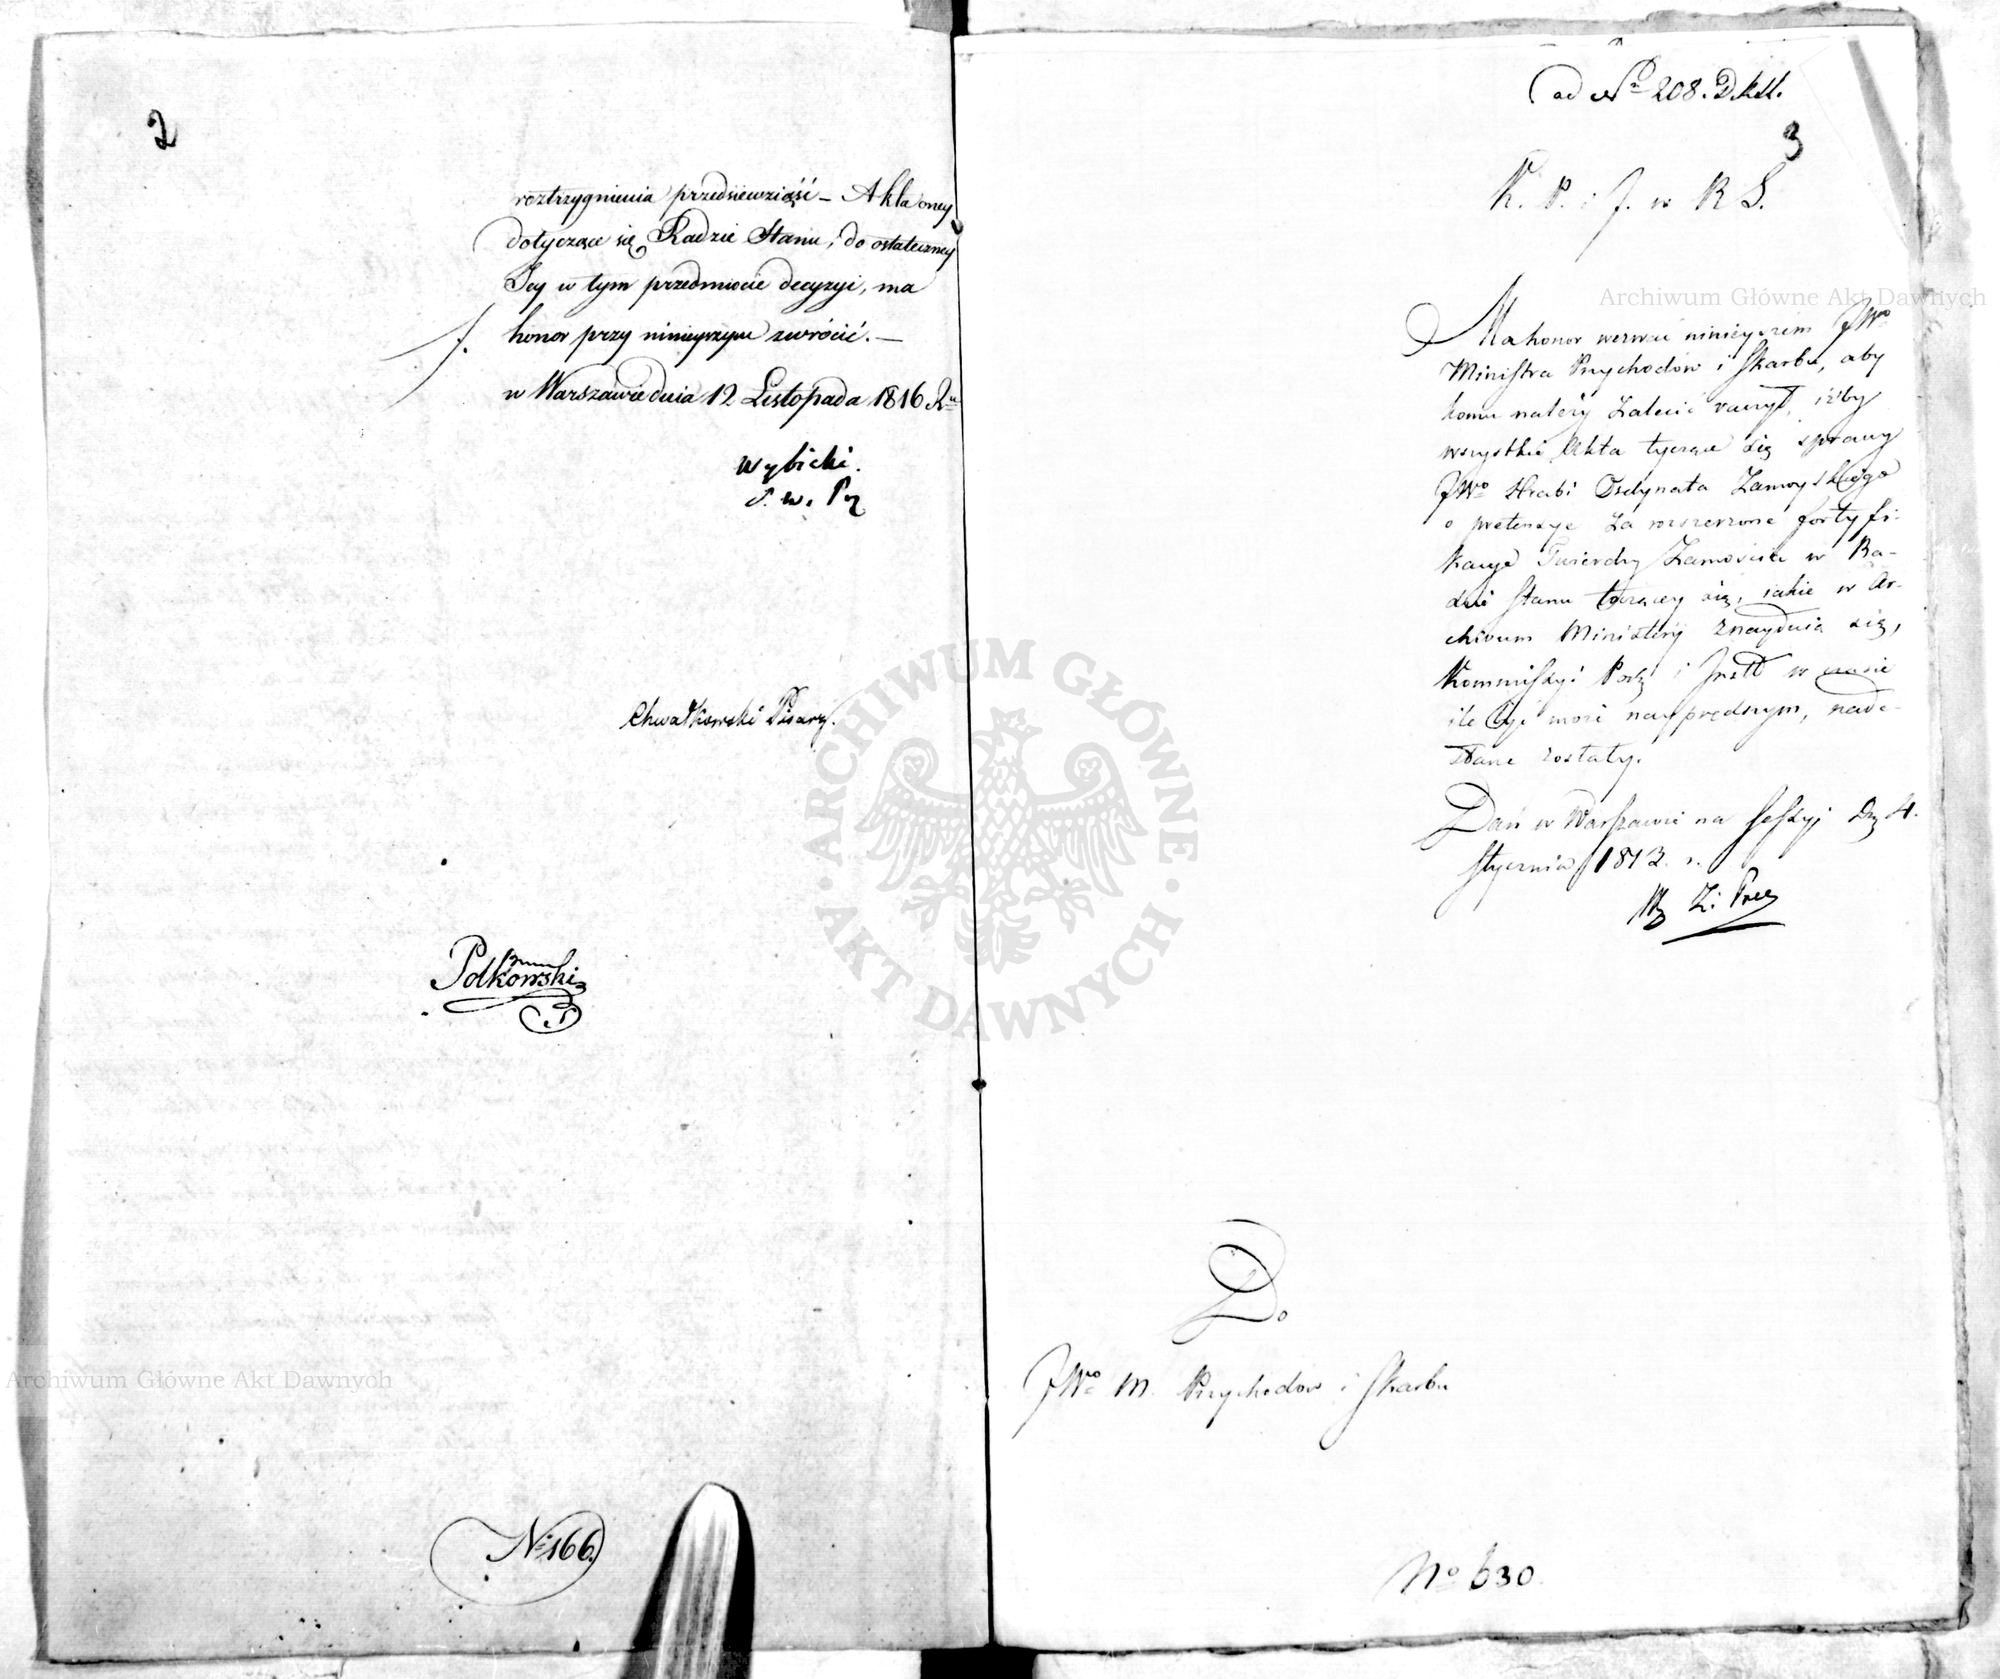 2
roztrzygnienia przedsiewziąść – Akta oney
dotyczące się Radzie Stanu, do ostateczney
Jey w tym przedmiocie decyzyi, ma
honor przy ninieyszym zwrócić. –
w Warszawie dnia 12 Listopada 1816 Ru
Wybicki.
P. w. Pz
Chwałkowski Pisarz.
Polkowski
No 166.
ad No 208. D.
3
K. P. i J. w R S.
Ma honor wezwać ninieyszem JWo
Ministra Przychodów i Skarbu, aby
komu należy zalecić raczył, iżby
wszystkie Akta tyczące się sprawy
JWo Hrabi Ordynata Zamoyskiego
o pretensye za rozszerzone fortyfi-
kacye Twierdzy Zamościa w Ra-
dzie Stanu toczącey się, iakie w Ar-
chivum Ministeryi znayduią się,
Kommissyi Podz i Inst w czasie
ile być może nayprędszym, nade-
słane zostały.
Dan w Warszawie na Sessyi Dn 4.
Stycznia 1813. r.
Do
JWo M. Przychodów i Skarbu
No 630.
Archiwum Główne Akt Dawnych
Archiwum Główne Akt Dawnych
ARCHIWUM GŁÓWNE
AKT DAWNYCH